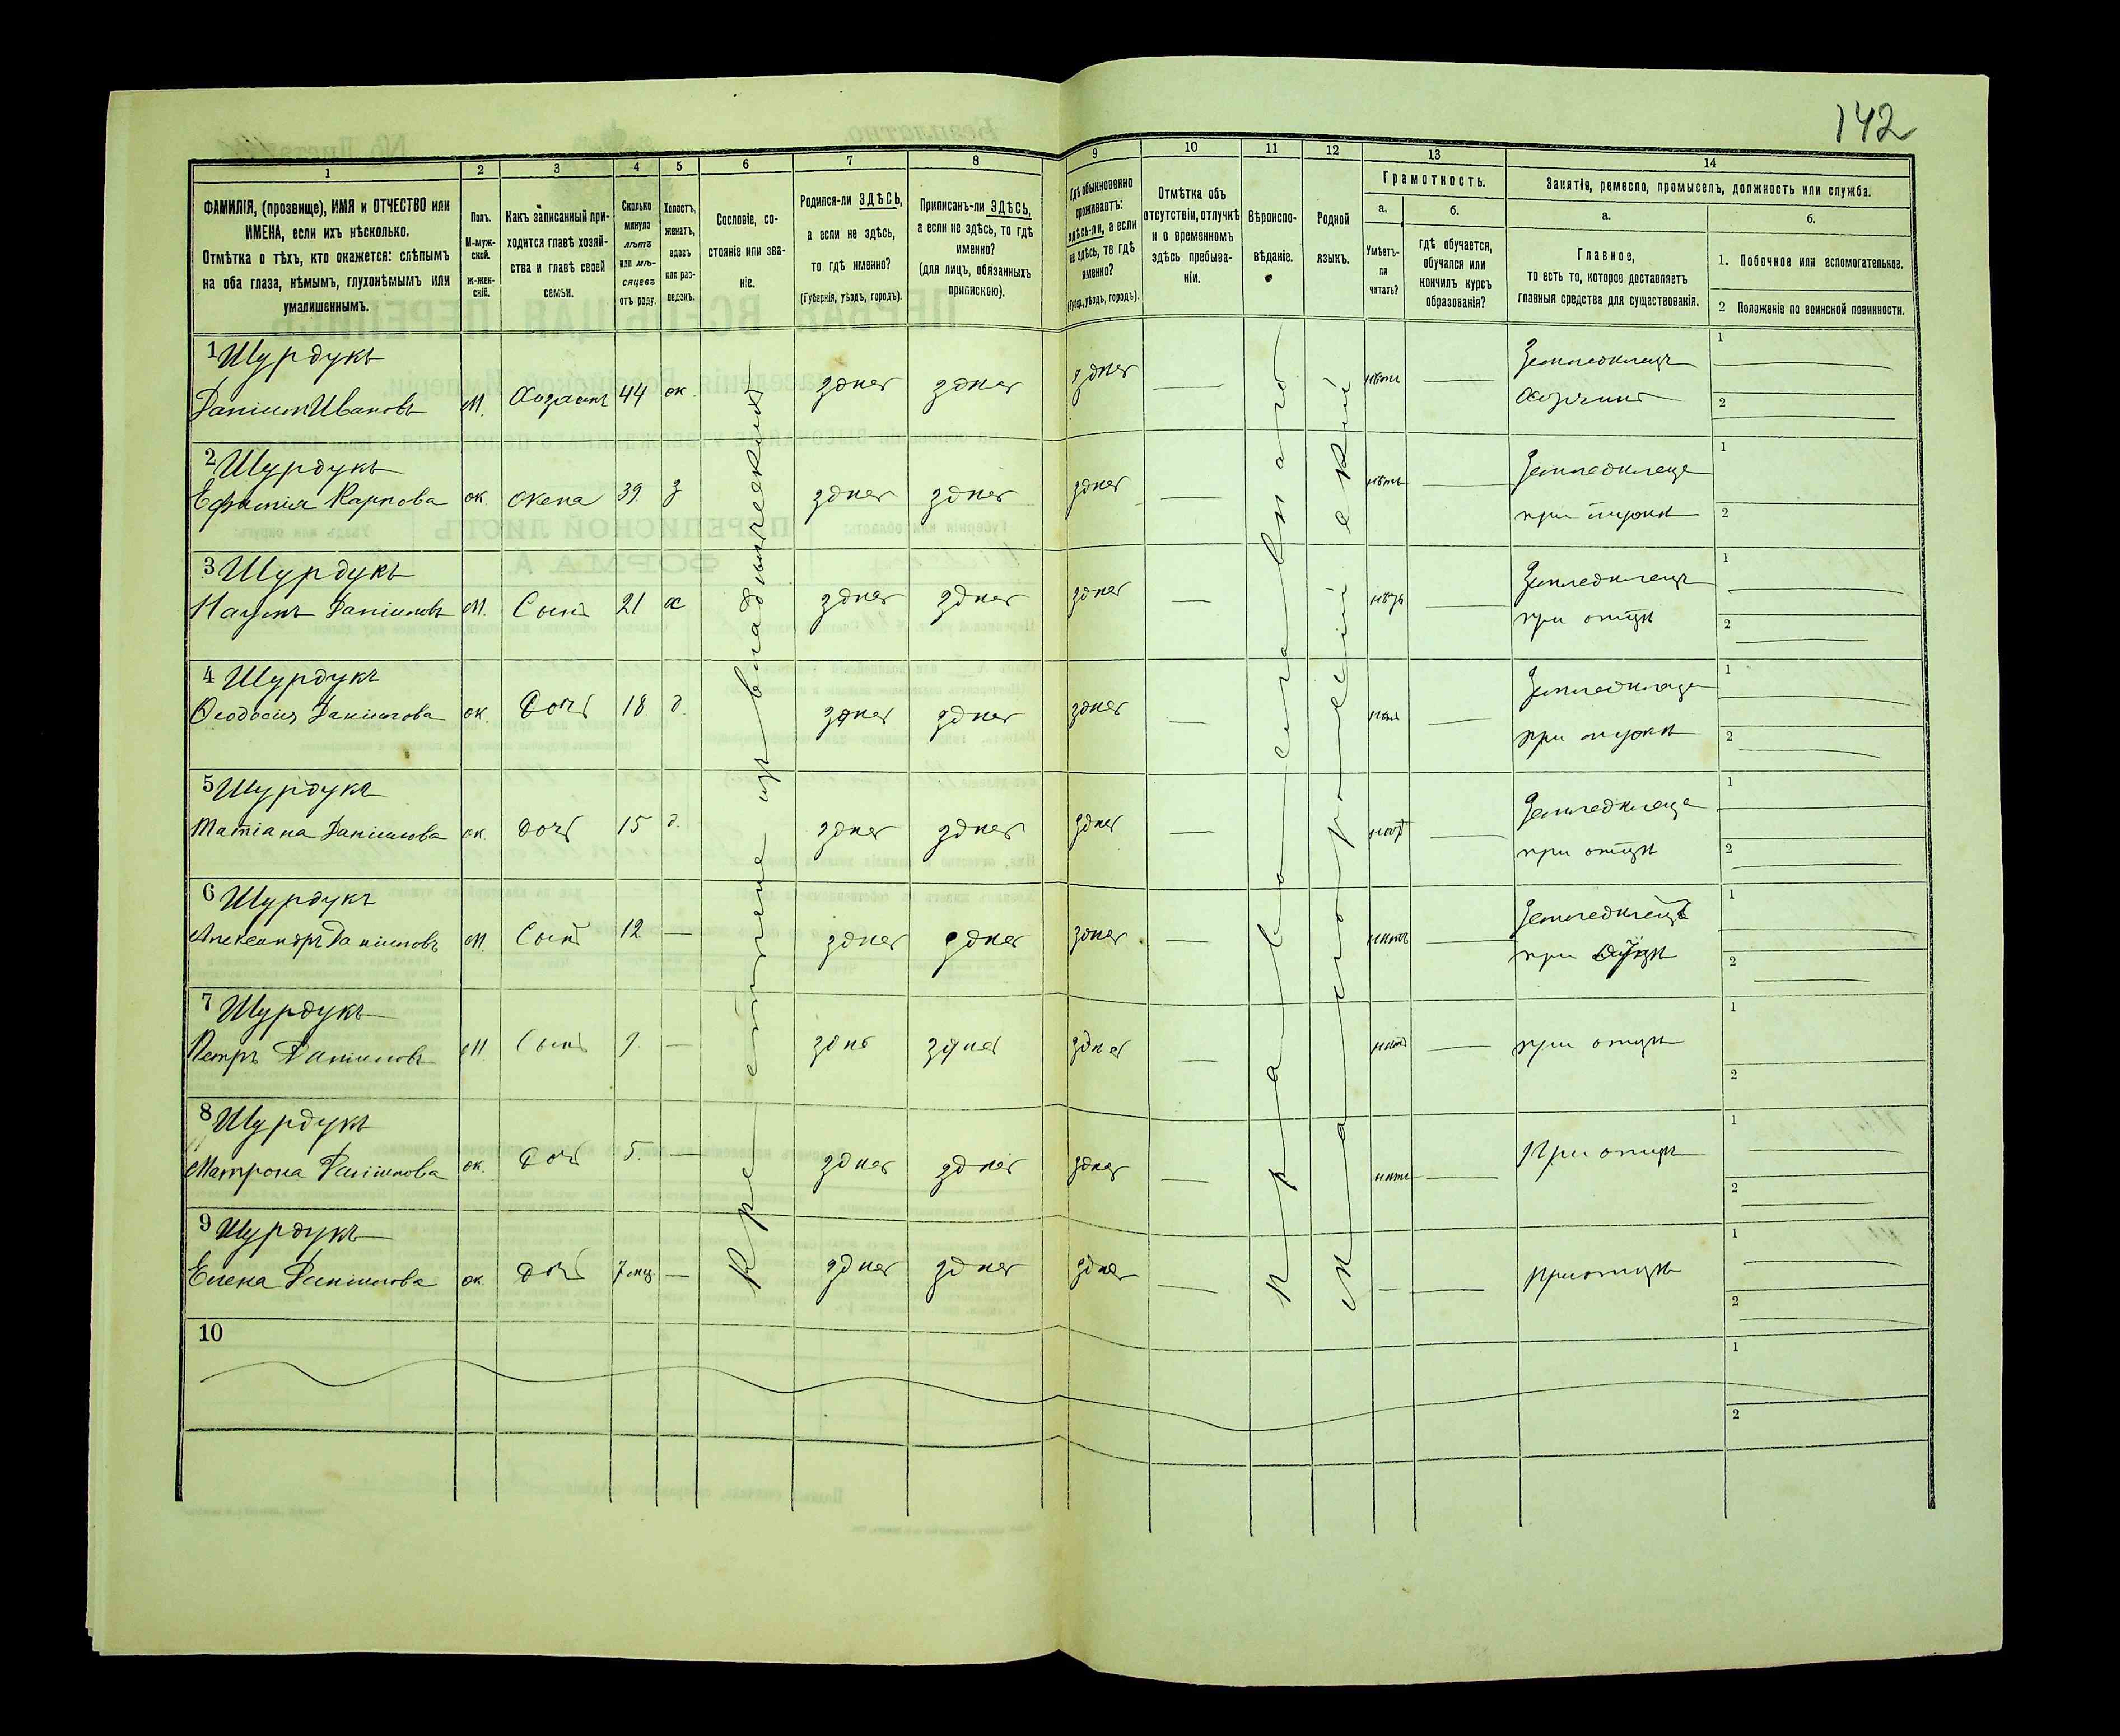 142
1
2
3
4
5
6
7
8
9
10
11
12
13
14
ФАМИЛІЯ, (прозвище), ИМЯ и ОТЧЕСТВО или
ИМЕНА, если ихъ нѣсколько.
Отмѣтка о тѣхъ, кто окажется: слѣпымъ
на оба глаза, нѣмымъ, глухонѣмымъ или
умалишеннымъ.
Полъ.
М-муж-
ской.
ж-жен-
скій.
Какъ записанный при-
ходится главѣ хозяй-
ства и главѣ своей
семьи.
Сколько
минуло
лѣтъ
или мѣ-
сяцевъ
отъ роду.
Холостъ,
женатъ,
вдовъ
или раз-
веденъ.
Сословіе, со-
стояніе или зва-
ніе.
Родился-ли ЗДѢСЬ,
а если не здѣсь,
то гдѣ именно?
(Губернія, уѣздъ, городъ).
Приписанъ-ли ЗДѢСЬ,
а если не здѣсь, то гдѣ
именно?
(для лицъ, обязанныхъ
припискою).
Гдѣ обыкновенно
проживаетъ:
здѣсь-ли, а если
не здѣсь, то гдѣ
именно?
(Губ., уѣздъ, городъ).
Отмѣтка объ
отсутствіи, отлучкѣ
и о временномъ
здѣсь пребыва-
ніи.
Вѣроиспо-
вѣданіе.
Родной
языкъ.
Грамотность.
а.
Умѣетъ-
ли
читать?
б.
гдѣ обучается,
обучался или
кончилъ курсъ
образованія?
Занятіе, ремесло, промыселъ, должность или служба.
а.
Главное,
то есть то, которое доставляетъ
главныя средства для существованія.
б.
1. Побочное или вспомогательное.
2 Положеніе по воинской повинности.
Крестьяне изъ владѣльческихъ
Православнаго
Малороссійскій
1 Шурдукъ
Даніилъ Ивановъ м. Хозяинъ 44 ж. здѣсь здѣсь здѣсь — нѣтъ — Земледѣлецъ 1
Хозяинъ 2
2 Шурдукъ
Ефимія Карпова ж. жена 39 з здѣсь здѣсь здѣсь — нѣтъ — Земледѣлецъ 1
при мужѣ 2
3 Шурдукъ
Наумъ Даніиловъ м. Сынъ 21 х здѣсь здѣсь здѣсь — нѣтъ — Земледѣлецъ 1
при отцѣ 2
4 Шурдукъ
Ѳеодосія Даніилова ж. Дочь 18 д. здѣсь здѣсь здѣсь — нѣтъ — Земледѣлецъ 1
при 2
5 Шурдукъ
Татіана Даніилова ж. дочь 15 д. здѣсь здѣсь здѣсь — нѣтъ — Земледѣлецъ 1
при отцѣ 2
6 Шурдукъ
Александръ Даніиловъ м. Сынъ 12 — здѣсь здѣсь здѣсь — нѣтъ — Земледѣлецъ 1
при отцѣ 2
7 Шурдукъ
Петръ Даніиловъ м. Сынъ 9. — здѣсь здѣсь здѣсь — нѣтъ — при отцѣ 1
2
8 Шурдукъ
Матрона Даніилова ж. Дочь 5. — здѣсь здѣсь здѣсь — нѣтъ — При отцѣ 1
2
9 Шурдукъ
Елена Даніилова ж. дочь 7 мц — здѣсь здѣсь здѣсь — — — при отцѣ 1
2
10 1
2